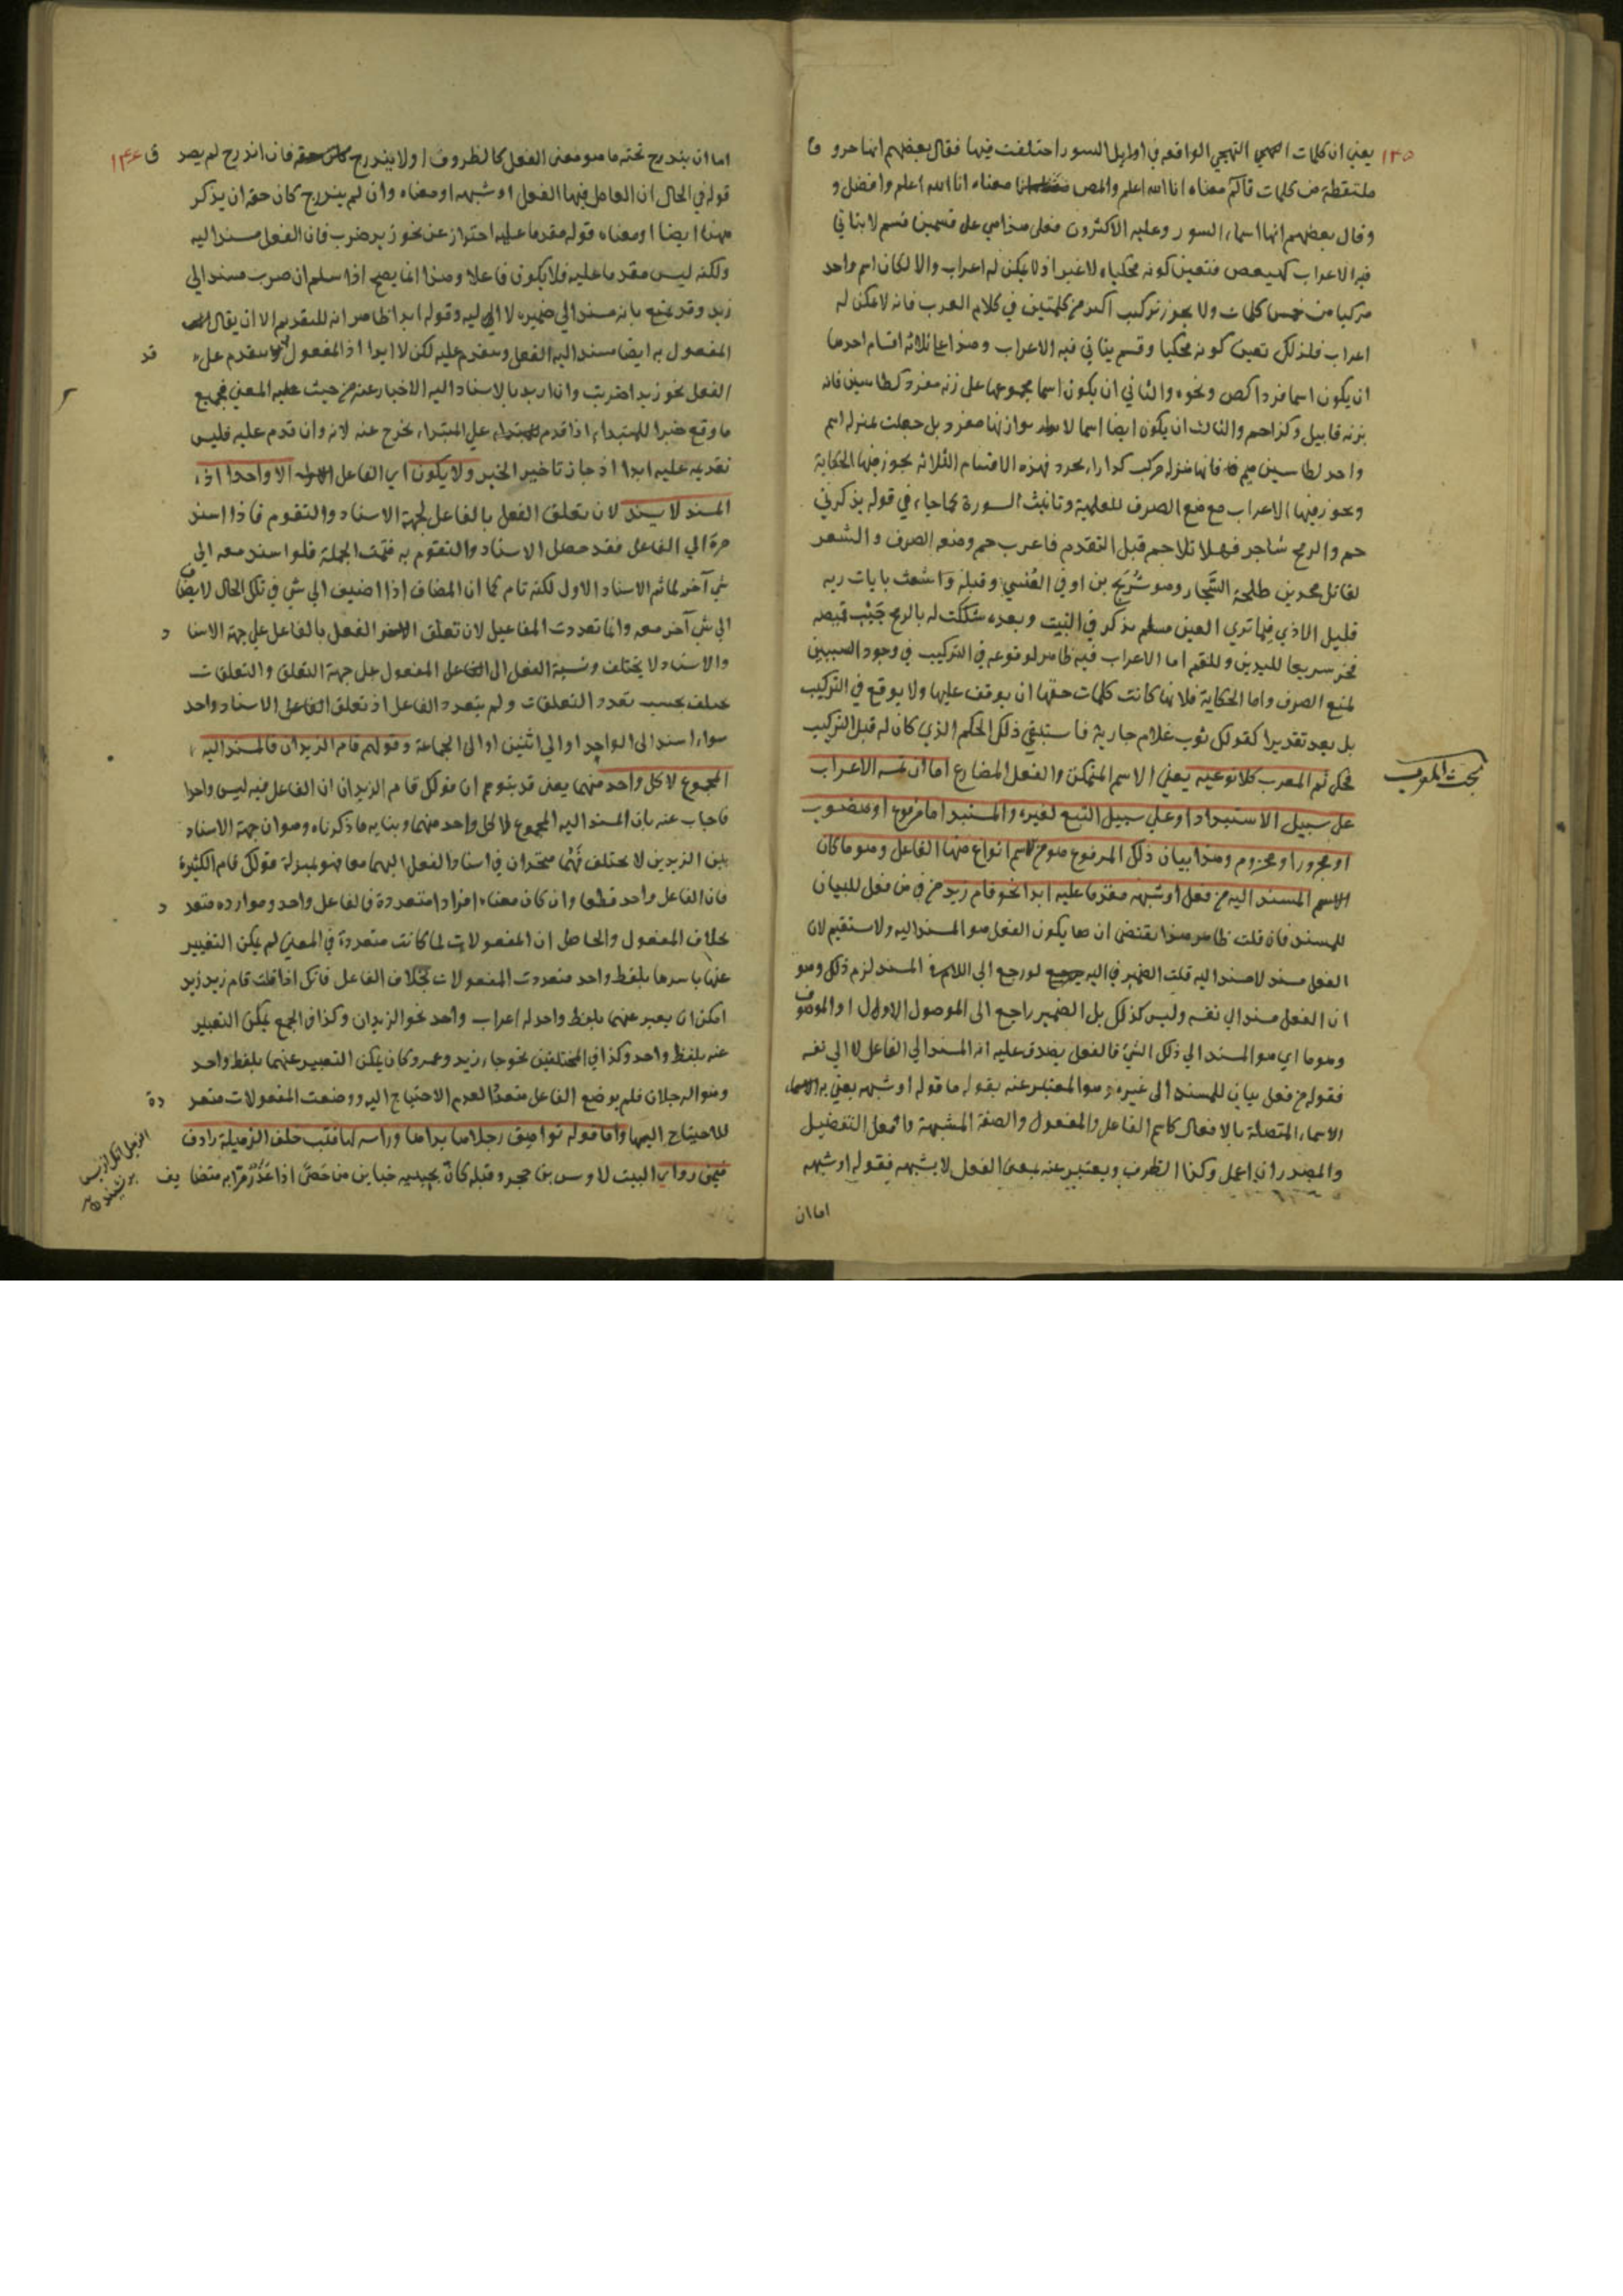 ١٣٥
يعني ان كلمات التهجي الواقعه في اوايل السور اختلفت فيها فقال بعضهم انها حرو ف
ملتقطة من كلمات قالم معناه انا الله اعلم والمص معناه انا الله اعلم وافضل و
وقال بعضهم انها اسماء السور وعليه الاكثرون فعلى هذا هي على قسمين قسم لا يتاتي
فيه الاعراب كهيعص فتعين كونه محكيا لا غير اذ لا يمكن له اعراب والا لكان اسم واحد
مركبا من خمس كلمات ولا يجوز تركيب اكثر من كلمتين في كلام العرب فانه لا يمكن له
اعراب فلذلك تعين كونه محكيا وقسم يتاتي فيه الاعراب وهذا علي ثلاثه اقسام احدها
ان يكون اسما فردا كص ونحوه والثاني ان يكون اسما مجموعها على زنه مفرد كطاسين فانه
بزنه قابيل وكذا حم والثالث ان يكون ايضا اسما لا يوازنها مفرد بل جعلت بمنزله اسم
واحد لطاسين ميم فانها منزله مركب كدارابجرد فهذه الاقسام الثلاثه يجوز فيها الحكاية
ويجوز فيها الاعراب مع منع الصرف للعلمية وتانيث السورة كما جاء في قوله يذكرني
حم والرمح شاجر فهلا تلا حم قبل التقدم فاعرب حم ومنعه الصرف والشعر
لقاتل محمد بن طلحة السجاد وهو شريح بن اوفي العبسي وقبله واشعث بايات ربه
قليل الاذي فيما تري العين مسلم يذكر في البيت وبعده شككت له بالرمح جيب قميصه
فخر سريعا لليدين وللفم اما الاعراب فيه ظاهر لوقوعه في التركيب في وجود السببين
لمنع الصرف واما الحكاية فلانها كانت كلمات حقها ان يوقف عليها ولا يوقع في التركيب
بل يعد تقديرا كقولك ثوب غلام جارية فاستبقي ذلك الحكم الذي كان له قبل التركيب
بحث المعرب
فحكي ثم المعرب كلا نوعيه يعني الاسم المتمكن والفعل المضارع اما ان الاعراب
على سبيل الاستبداد او علي سبيل التبع لغيره والمستبد اما مرفوع او منصوب
او مجرور او مجزوم وهذا بيان ذلك المرفوع هو من الاسم انواع منها الفاعل وهو ما كان
الاسم المسند اليه من فعل او شبهه مقدما عليه ابدا نحو قام زيد من في من فعل للبيان
للمسند فان قلت ظاهر هذا يقتضي ان يكون الفعل هو المسند اليه ولا يستقيم لان
الفعل مسند لا مسند اليه قلت الضمير في اليه لو رجع الى اللام في المسند لزم ذلك وهو
ان الفعل مسند الي نفسه وليس كذلك بل الضمير راجع الى الموصول الاول او الموصوف
وهو ما اي هو المسند الي ذلك الشئ فالفعل يصدق عليه انه المسند الي الفاعل لا الي نفسه
فقوله من فعل بيان للمسند الى غيره وهو المعتبر عنه بقوله ما قوله او شبهه يعني به الاسماء
الاسماء المتصلة بالافعال كاسم الفاعل والمفعول والصفة المشبهة وافعل التفضيل
والمصدر ان اعمل وكذا الظرف ويعتبر عنه بمعنى الفعل لا بشبهه فقوله او شبهه
اما ان
١٣٦
اما ان يندرج تحته ما هو معنى الفعل كالظروف او لا يندرج فان اندرج لم يصد ق
قوله في الحال ان العامل فيها الفعل او شبهه او معناه وان لم يندرج كان حقه ان يذكر
ههنا ايضا او معناه قوله مقدما عليه احتراز عن نحو زيد ضرب فان الفعل مسند اليه
ولكنه ليس مقدما عليه فلا يكون فاعلا وهذا انما يصح اذا سلم ان ضرب مسند الي
زيد وقد يمنع بانه مسند الي ضميره لا اليه وقوله ابدا ظاهر انه للتقديم الا ان يقال
المفعول به ايضا مسند اليه الفعل ويتقدم عليه لكن لا ابدا اذ المفعول قد يتقدم على
الفعل نحو زيدا ضربت وان اريد بالاسناد اليه الاخبار عنه من حيث المعني فجميع
ما وقع خبرا للمبتداء اذا قدم على المبتداء يخرج عنه لانه وان قدم عليه فليس
تقديمه عليه ابدا اذ جاز تاخير الخبر ولا يكون اي الفاعل الا واحدا اذ
المسند لا يسند لان تعلق الفعل بالفاعل لجهة الاسناد والتقوم فاذا اسند
مرة الي الفاعل فقد حصل الاسناد والتقوم به فتمت الجملة فلو اسند معه الي
شي آخر لما تم الاسناد الاول لكنه تام كما ان المضاف اذا اضيف الي شي في تلك الحال لا يضاف
الي شي آخر معه وانما تعددت المفاعيل لان تعلق الفعل بالفاعل علي جهة الاسنا د
والاسناد لا يختلف ونسبة الفعل الى المفعول على جهة التعلق والتعلقات
يختلف بحسب تعدد التعلقات ولم يتعدد الفاعل اذ تعلق الفاعل الاسناد واحد
سواء اسند الى الواحد او الي اثنين او الى الجماعة وقولهم قام الزيدان فالمسند اليه
المجموع لا كل واحد منهما يعني قد يتوهم ان قولك قام الزيدان ان الفاعل فيه ليس واحدا
فاجاب عنه بان المسند اليه المجموع لا كل واحد منهما وبنا به ما ذكرناه وهو ان جهة الاسناد
بين الزيدين لا يختلف فهما متحدان في اسناد الفعل اليهما معا فهو بمنزلة قولك قام الكثيرة
فان الفاعل واحد قطعا وان كان معناه افرادا متعددة فالفاعل واحد وموارده متعد د
بخلاف المفعول والحاصل ان المفعولات لما كانت متعددة في المعنى لم يمكن التعبير
عنها باسرها بلفظ واحد متعددت المفعولات بخلاف الفاعل فانك اذا قلت قام زيد زيد
امكن ان يعبر عنهما بلفظ واحد له اعراب واحد نحو الزيدان وكذا في الجمع يمكن التعبير
عنه بلفظ واحد وكذا في المختلفين نحو جاء زيد وعمرو كان يمكن التعبير عنهما بلفظ واحد
وهو الرجلان فلم يوضع الفاعل متعددا لعدم الاحتياج اليه ووضعت المفعولات متعد دة
للاحتياج اليها واما قوله تواهق رجلاها يداها وراسه لها قتب خلف الزميلة رادف
فيمن رواه البيت لاوس بن حجر وقبله كان